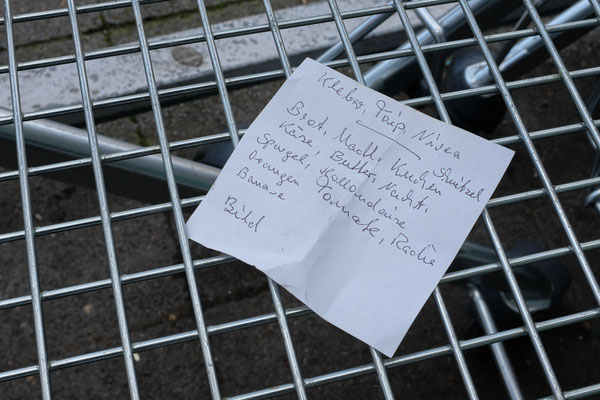 Kleber, Tüp, Nivea
Brot, Kuchen Schnitzel
Käse, Butter, Nacht.
Spargel, Hollondaise
Orangen Tomate,
Banane
Bild